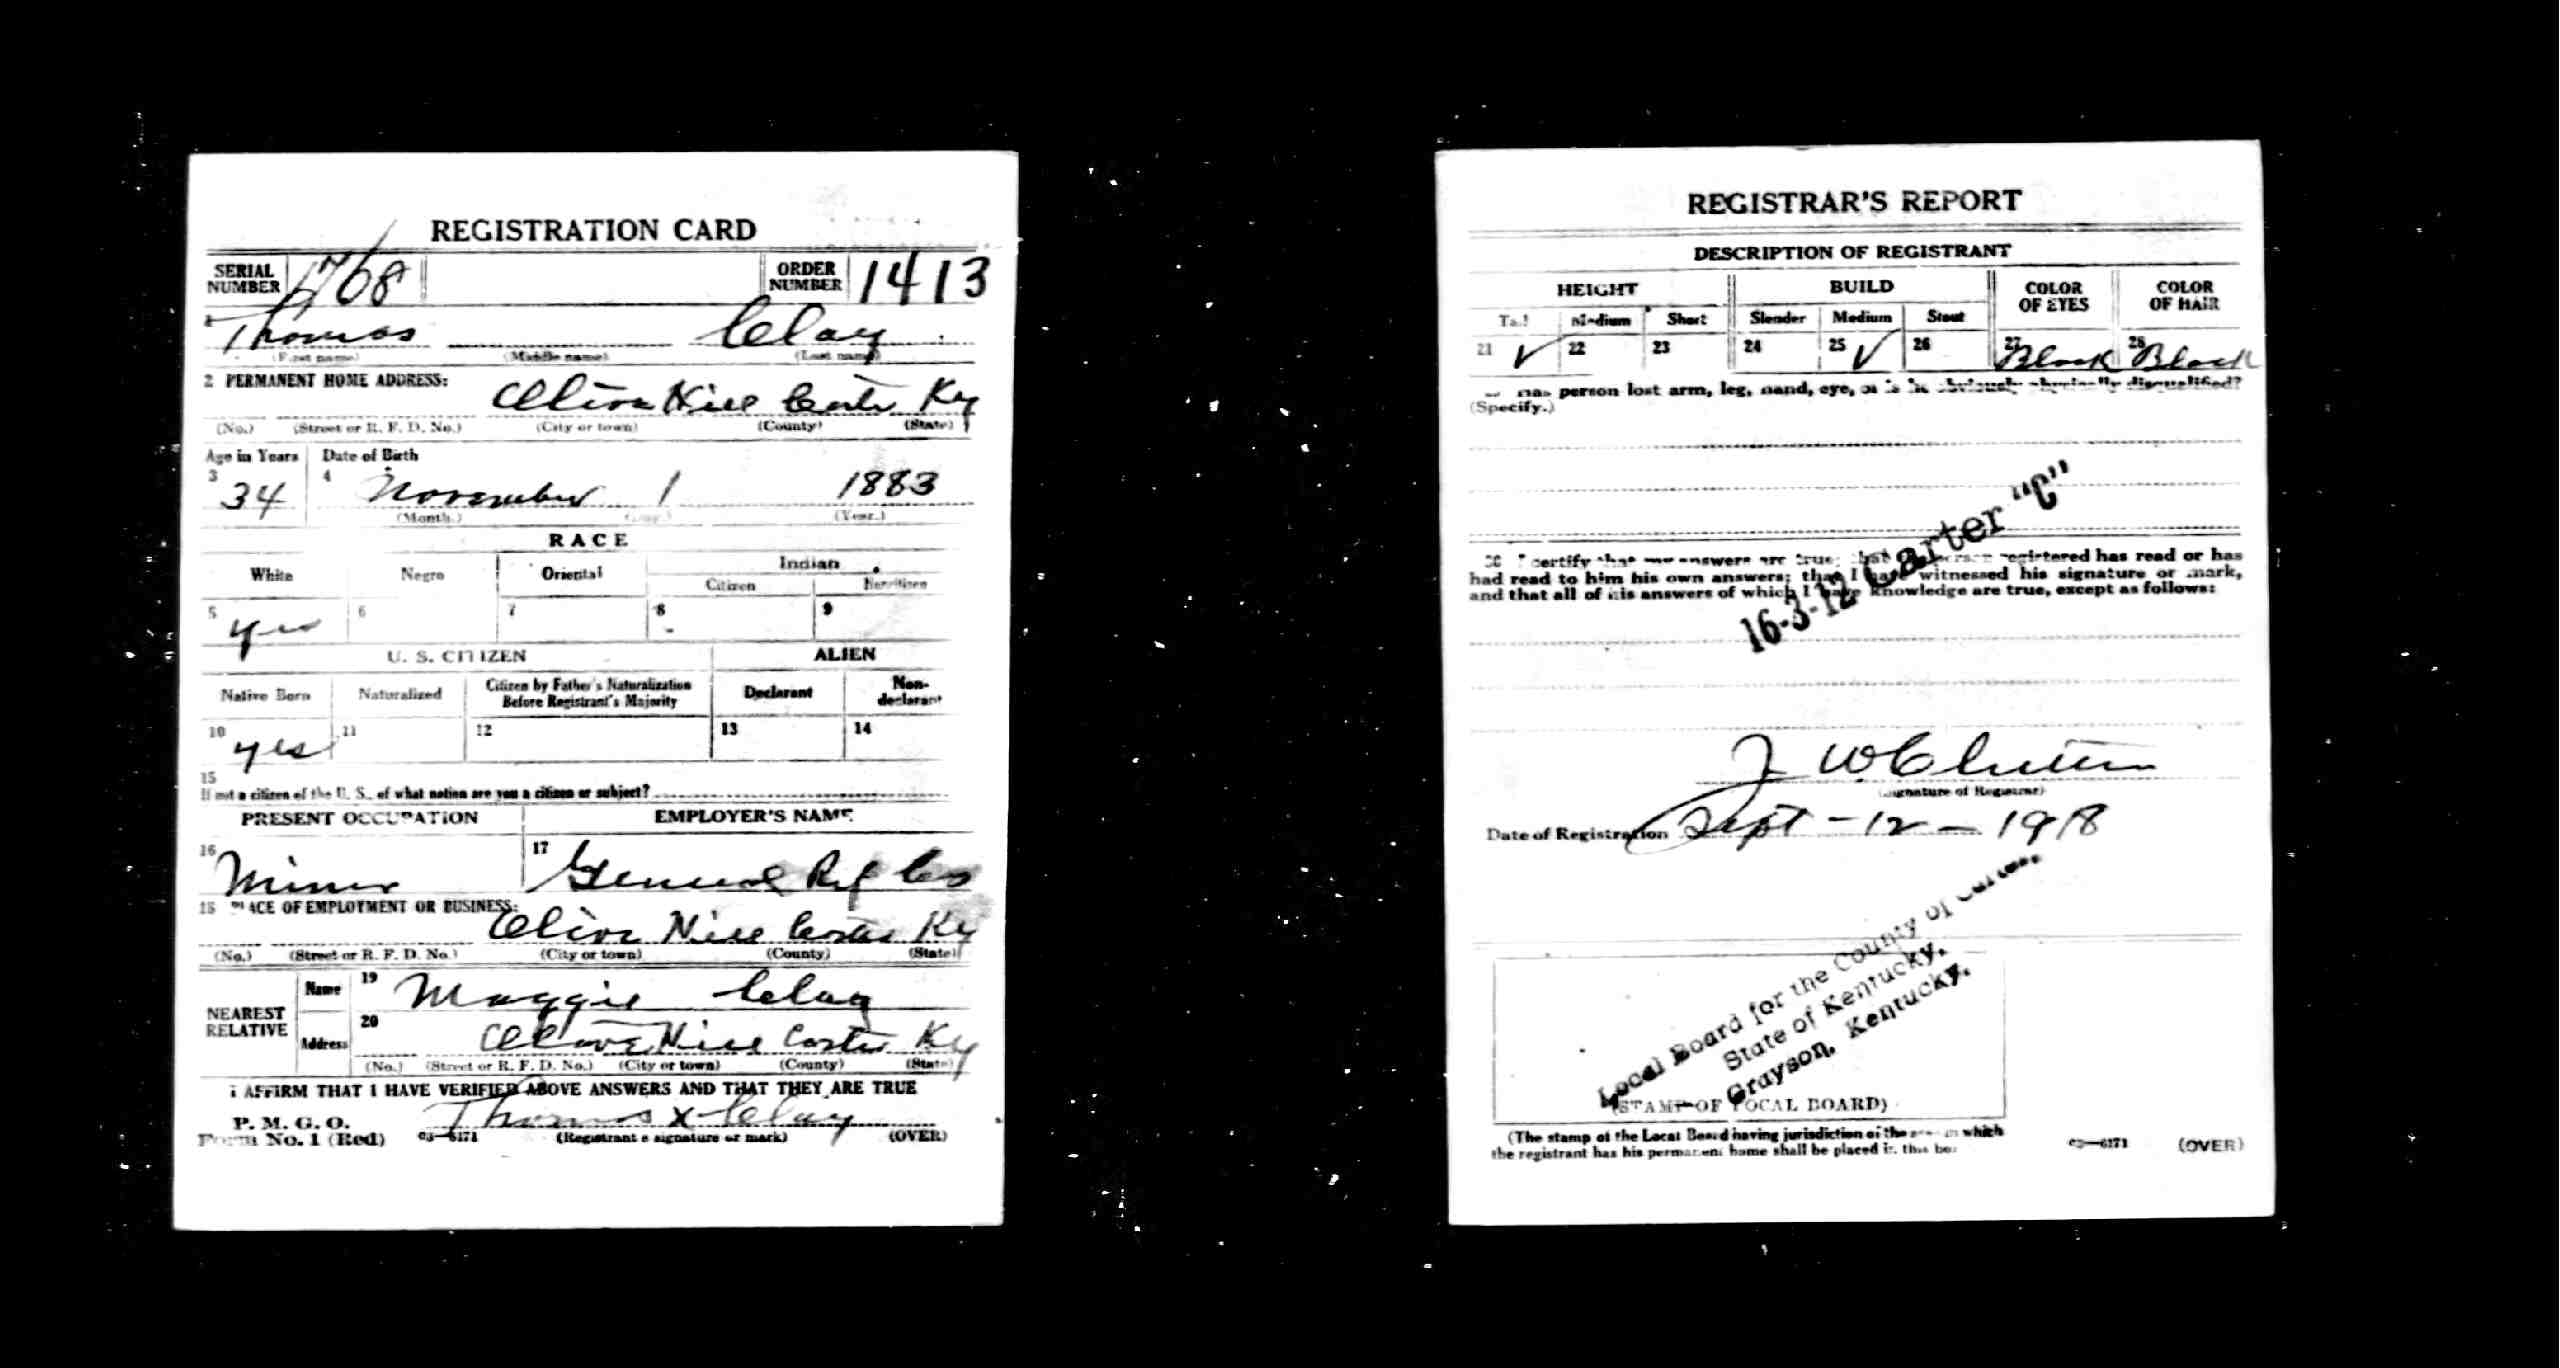 REGISTRATION CARD
SERIAL NUMBER 1768 ORDER NUMBER 1413
1 Thomas Clay
(First name) (Middle name) (Last name)
2 PERMANENT HOME ADDRESS:
Olive Hill Carter Ky
(No.) (Street or R. F. D. No.) (City or town) (County) (State)
Age in Years Date of Birth
3 34 4 November 1 1883
(Month.) (Day.) (Year.)
RACE
White Negro Oriental Indian
Citizen Noncitizen
5 yes 6 7 8 9
U. S. CITIZEN ALIEN
Native Born Naturalized Citizen by Father's Naturalization Before Registrant's Majority Declarant Non-declarant
10 yes 11 12 13 14
15
If not a citizen of the U. S., of what nation are you a citizen or subject?
PRESENT OCCUPATION EMPLOYER'S NAME
16 Miner 17 General Ref Co
18 PLACE OF EMPLOYMENT OR BUSINESS:
Olive Hill Carter Ky
(No.) (Street or R. F. D. No.) (City or town) (County) (State)
NEAREST RELATIVE
Name 19 Maggie Clay
Address 20 Olive Hill Carter Ky
(No.) (Street or R. F. D. No.) (City or town) (County) (State)
I AFFIRM THAT I HAVE VERIFIED ABOVE ANSWERS AND THAT THEY ARE TRUE
P. M. G. O.
Form No. 1 (Red) 03—6171 Thomas x Clay
(Registrant's signature or mark) (OVER)
REGISTRAR'S REPORT
DESCRIPTION OF REGISTRANT
HEIGHT BUILD COLOR OF EYES COLOR OF HAIR
Tall Medium Short Slender Medium Stout
21 ✓ 22 23 24 25 ✓ 26 27 Black 28 Black
has person lost arm, leg, hand, eye, or is he obviously physically disqualified?
(Specify.)
16-3-12 Carter "C"
30 I certify that my answers are true; that person registered has read or has
had read to him his own answers; that I have witnessed his signature or mark,
and that all of his answers of which I have knowledge are true, except as follows:
(Signature of Registrar)
Date of Registration Sept - 12 - 1918
Local Board for the County of Carter,
State of Kentucky,
Grayson, Kentucky.
(STAMP OF LOCAL BOARD)
(The stamp of the Local Board having jurisdiction of the area in which
the registrant has his permanent home shall be placed in this box.)
03—6171 (OVER)